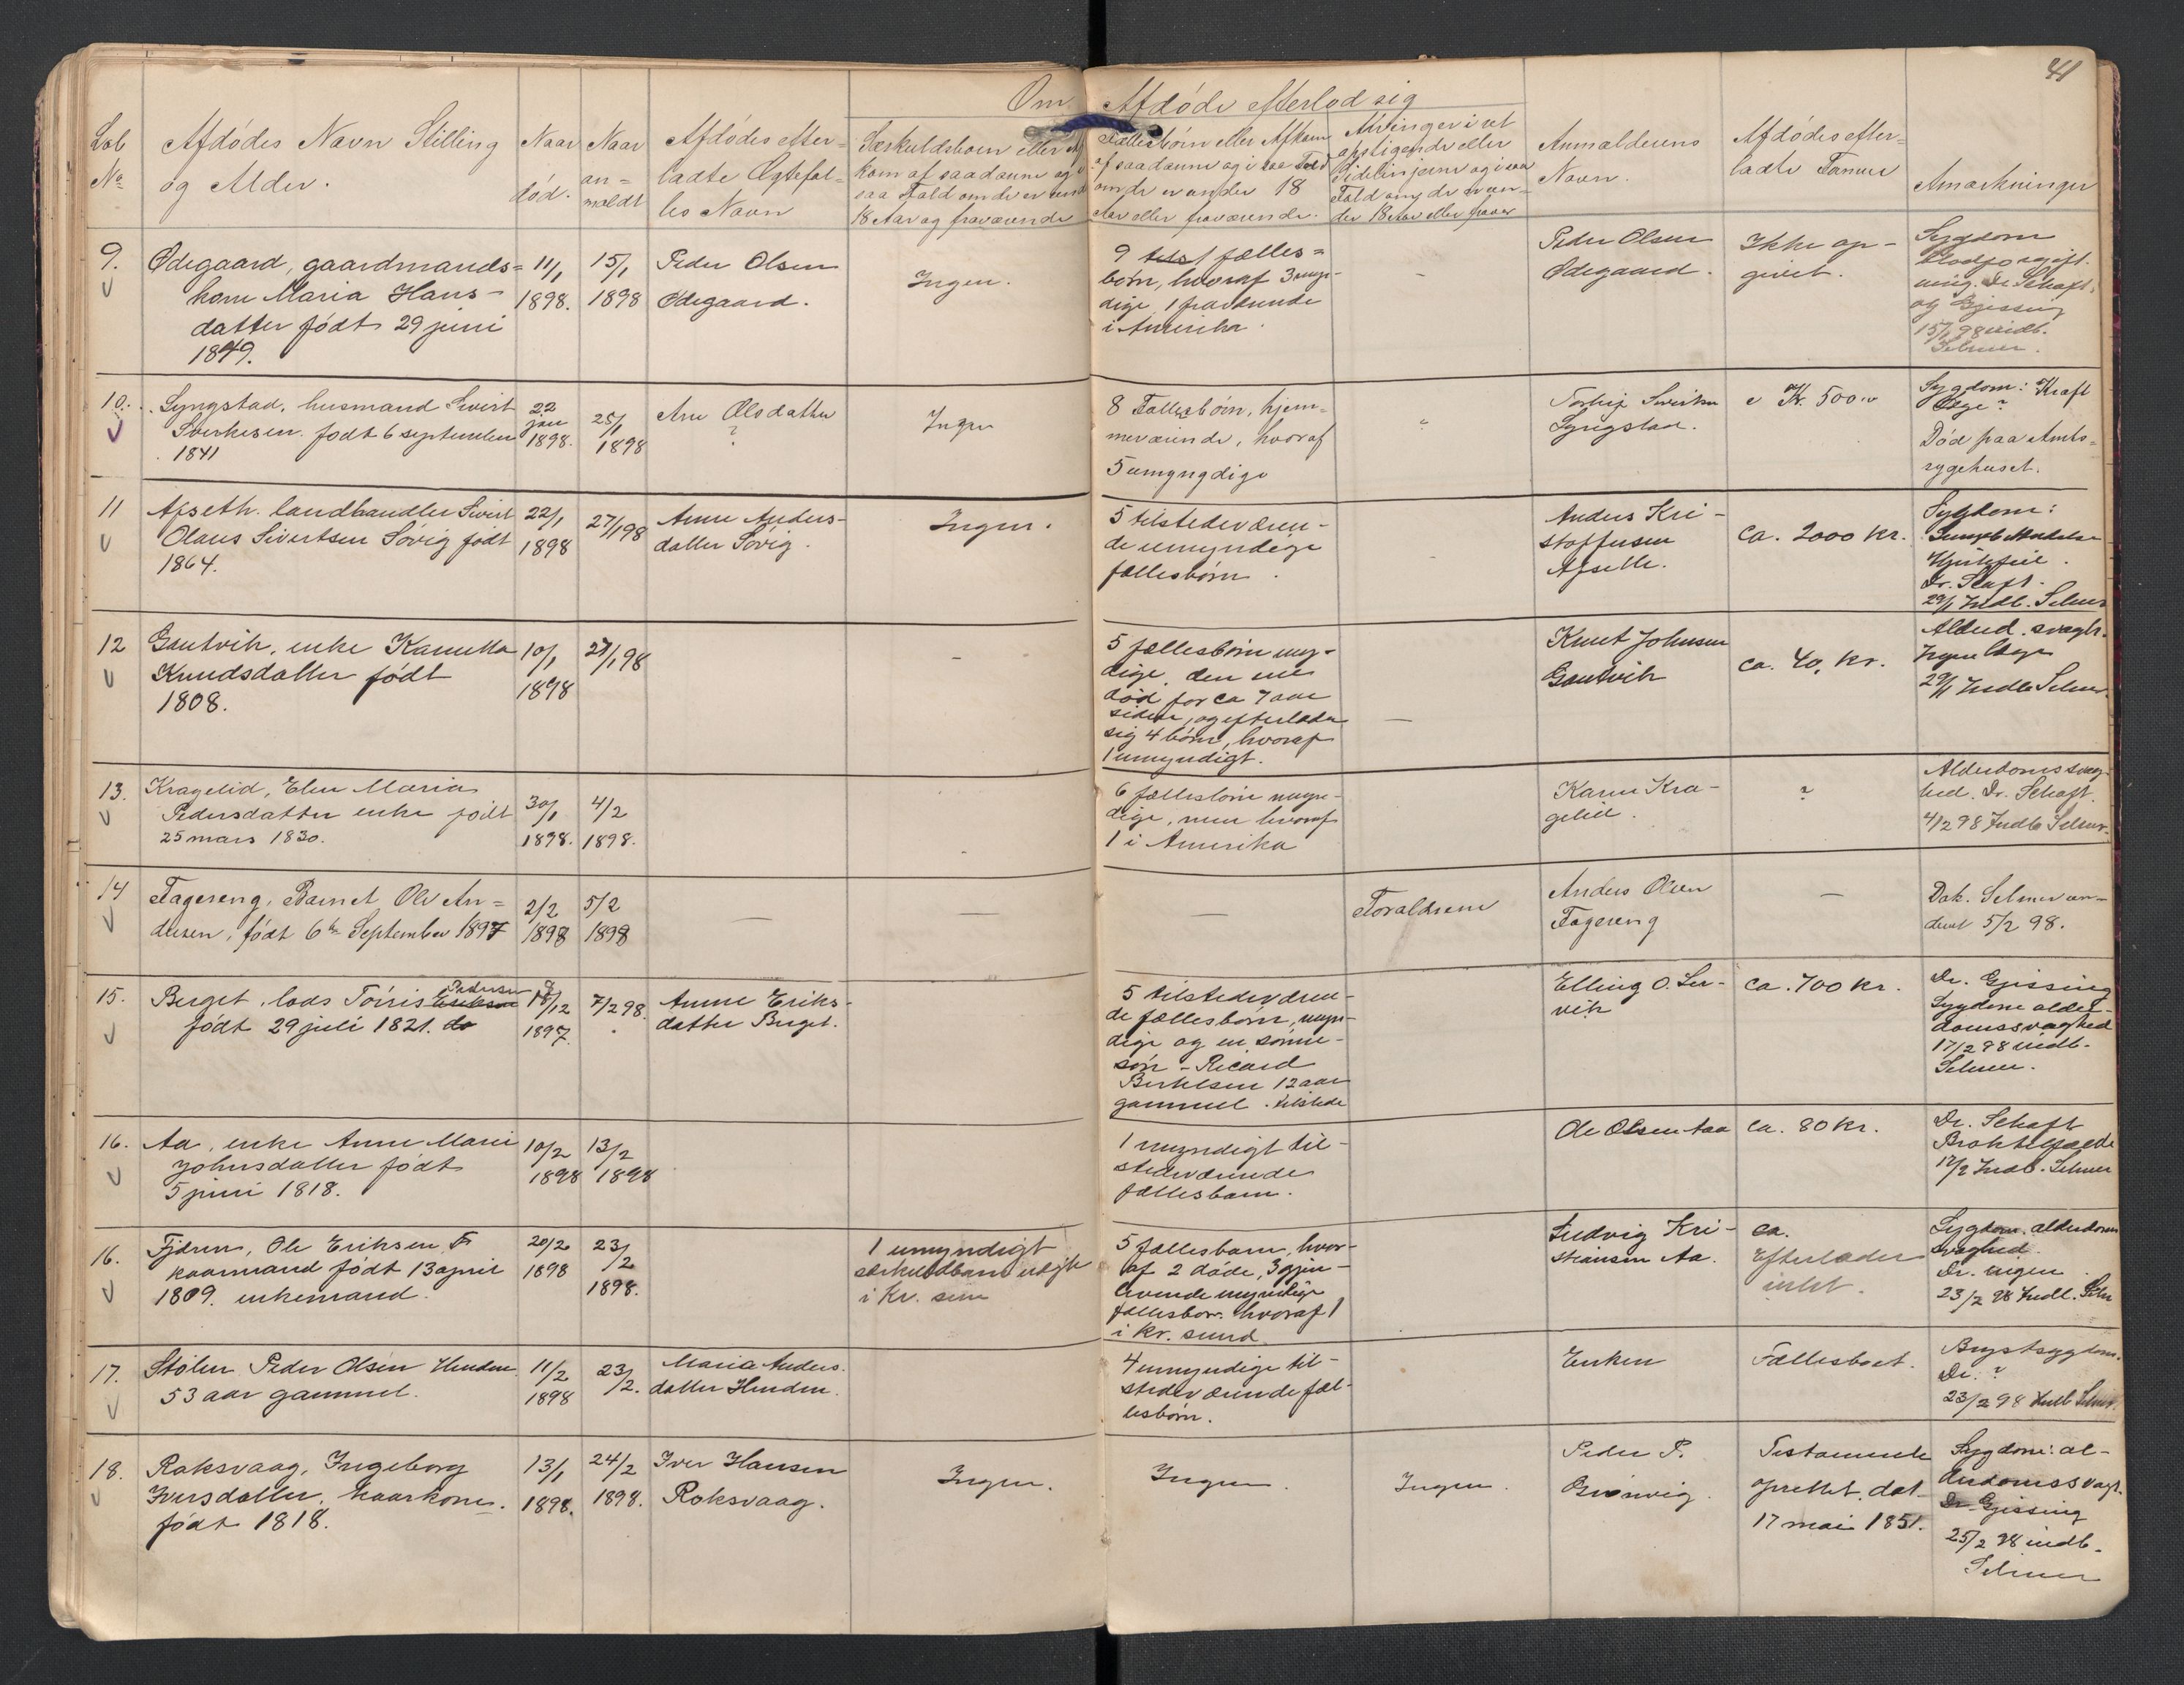 41
Om Afdöde efterlod sig
Løb
No
Afdödes Navn Stilling
og Alder.
Naar
död.
Naar
an-
meldt
Afdödes efter-
ladte Ægtefæl-
les Navn
Særkuldsbörn eller Af
kom af saadanne og i
saa Fald om de er under
18 Aar og fraværende
Fællesbörn eller Afkom
af saadanne og i saa Fald
om de er under 18
Aar eller fraværende.
Arvinger i ret
opstigende eller
Sidelinjerne og i saa
Fald om de er un-
der 18 Aar eller fravær
Anmelderens
Navn.
Afdödes efter-
ladte Formue
Anmærkninger
9.
Ødegaard, gaardmands-
kone Maria Hans-
datter födt 29 juni
1849.
11/1
1898.
15/1
1898
Peder Olsen
Ödegaard.
Ingen.
9 fælles-
börn, hvoraf 3 myn-
dige, 1 fraværende
i Amerika.
-
Peder Olsen
Ödegaard.
Ikke op-
givet.
Sygdom
Blodforgift-
ning. Dr. Schaft.
og Gjessing
15/1 98 indb.
Selmer.
10.
Syngstad, husmand Sivert
Sverkesen. födt 6 september
1841
22
jan
1898.
25/1
1898
Ane Olsdatter
?
Ingen
8 Fællesbörn, hjem-
meværende, hvoraf
5 umyngdige
Syngstad.
Kr. 500
Sygdom: Kræft
Læge?
Död paa Amts-
sygehuset.
11
Afseth. landhandler Sivert
Olaus Sivertsen Sövig födt
1864.
22/1
1898
27/1 98
Anne Anders-
datter Sövig.
Ingen.
5 tilstedeværen-
de umyndige
fællesbörn.
-
Anders Kri-
stoffersen
Afseth.
Ca. 2000 Kr.
Sygdom:
Hjertefeil.
Dr. Schaft.
29/1 Indb. Selmer
12
Gautvik, enke
Knudsdatter födt
1808.
10/1
1898
27/1 98
-
5 fællesbörn myn-
dige, den ene
död for ca 7 aar
siden, og efterlader
sig 4 börn, hvoraf
1 umyndigt.
-
Knut Johnsen
Gautvik
ca. 40, kr.
Alderd. svagh.
Ingen Læge
29/1 Indb Selmer.
13.
Kragelid, Elen Maria
Pedersdatter enke födt
25 mars 1830.
30/1
1898.
4/2
1898.
6 fællesbörn myn-
dige, men hvoraf
1 i Amerika
Karen Kra-
gelid.
?
Alderdomssvag-
hed. Dr. Schaft.
4/2 98 Indb Selmer.
14
Fagereng, Barnet Ole An-
dersen, födt 6te September 1897
2/2
1898
5/2
1898
-
-
-
Forældrene
Anders Olsen
Fagereng
-
Dok. Selmer an-
5/2 98.
15.
Pedersen
Berget, lods Törris Eriksen
födt 29 juli 1821. do
18/12
1897.
7/2 98.
Anne Eriks-
datter Berget.
5 tilstedeværen-
de fællesbörn, myn-
dige og en sönne-
sön - Ricard
Bertelsen 12 aar
gammel. tilstede
Elling O. Ler-
vik
Ca. 700 kr.
Dr. Gjessing
Sygdom alder-
domssvaghed
17/2 98 indb.
Selmer.
16.
Aa, enke Anne Marie
Johnsdatter födt
5 juni 1818.
10/2
1898
13/2
1898
1 myndigt til-
stedeværende
fællesbarn.
Ole Olsen Aaa
Ca. 80 Kr.
Dr. Schaft
17/2 Indb. Selmer
16.
Fjören, Ole Eriksen
kaarmand födt 13 april
1809. enkemand.
20/2
1898
23/2
1898.
1 umyndigt
særkuldbarn
i Kr. sund
5 fællesbarn, hvor-
af 2 döde, 3 gjen-
levende myndige
fællesbörn. hvoraf 1
i Kr. sund
Ludvig Kri-
stiansen Aa.
Ca.
Efterlader
intet.
Sygdom. alderdoms
svaghed.
Dr. ingen.
23/2 98 Indb. Selm
17.
Stölen Peder Olsen Henden
53 aar gammel.
11/2
1898
23/2.
Maria Anders.
datter Henden.
4 umyndige til-
stedeværende fæl-
lesbörn.
Enken
Fællesboet.
Brystsygdom.
Dr. ?
23/2 98 Indb Selmer.
18.
Roksvaag, Ingeborg
Iversdatter, kaarkone.
födt 1818.
13/1
1898.
24/2
1898.
Iver Hansen
Roksvaag.
Ingen.
Ingen.
Ingen.
Peder P.
Testamente
oprettet. dat.
17 mai 1851.
Sygdom: al-
derdomssvagh.
Dr. Gjessing
25/2 98 indb.
Selmer